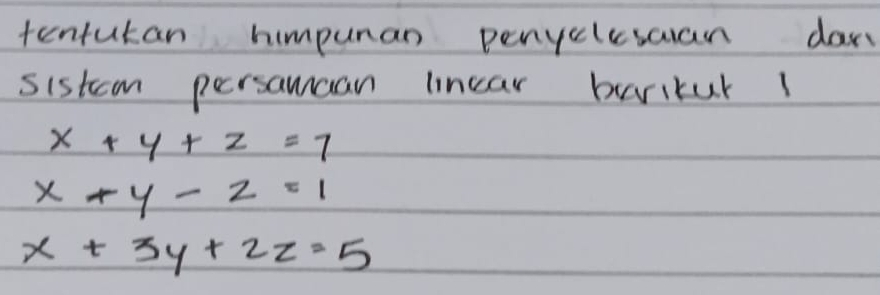 tentukan himpunan penyelesaian dari
sistem persamaan linear berikut !
x + y + z = 7
x + y - z = 1
x + 3y + 2z = 5